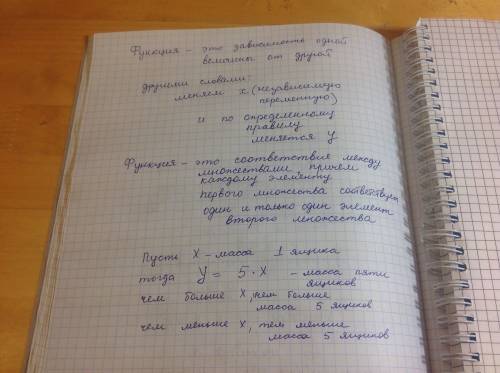 Функция - это зависимость одной
величины от другой
другими словами:
меняем x (независимую
переменную)
и по определенному
правилу
меняется y
Функция - это соответствие между
множествами причем
каждому элементу
первого множества соответствует
один и только один элемент
второго множества
Пусть X - масса 1 ящика
тогда Y = 5·X - масса пяти
ящиков
чем больше X, тем больше
масса 5 ящиков
чем меньше X, тем меньше
масса 5 ящиков